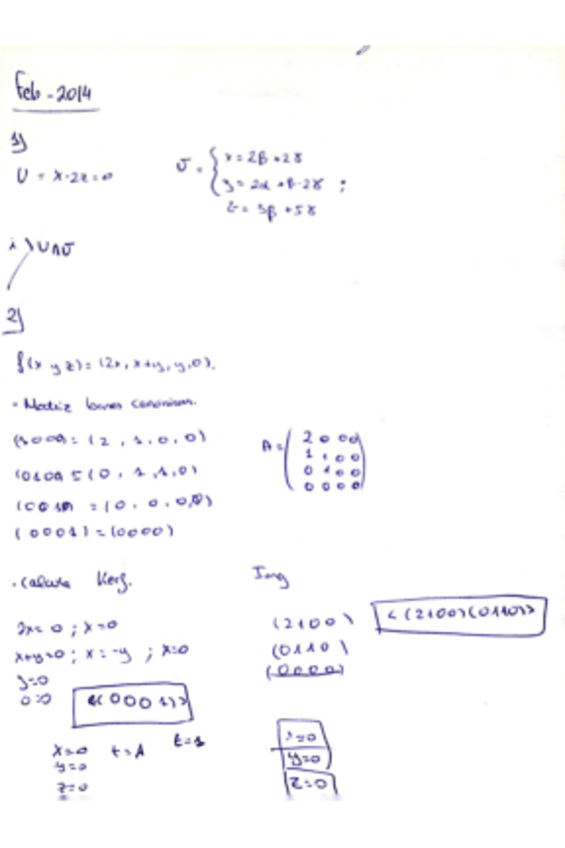 Feb - 2014
1)
U = x-2z=0
U = { x = 2β + 2γ
y = 2α + β - 2γ ;
z = 3β + 5γ
i) U∩U
2)
f(x y z) = (2x, x+y, y, 0).
- Matriz bases canonicas.
(1000) = (2, 1, 0, 0)
(0100) = (0, 1, 1, 0)
(0010) = (0, 0, 0, 0)
(0001) = (0000)
A = ( 2 0 0 0
1 1 0 0
0 1 0 0
0 0 0 0 )
. calcula Kerf.
2x = 0 ; x=0
x+y=0 ; x=-y ; x=0
y=0
0=0
<(0001)>
x=0 t=λ t=1
y=0
z=0
Img
(2100)
(0110)
(0000)
<(2100)(0110)>
x=0
y=0
z=0